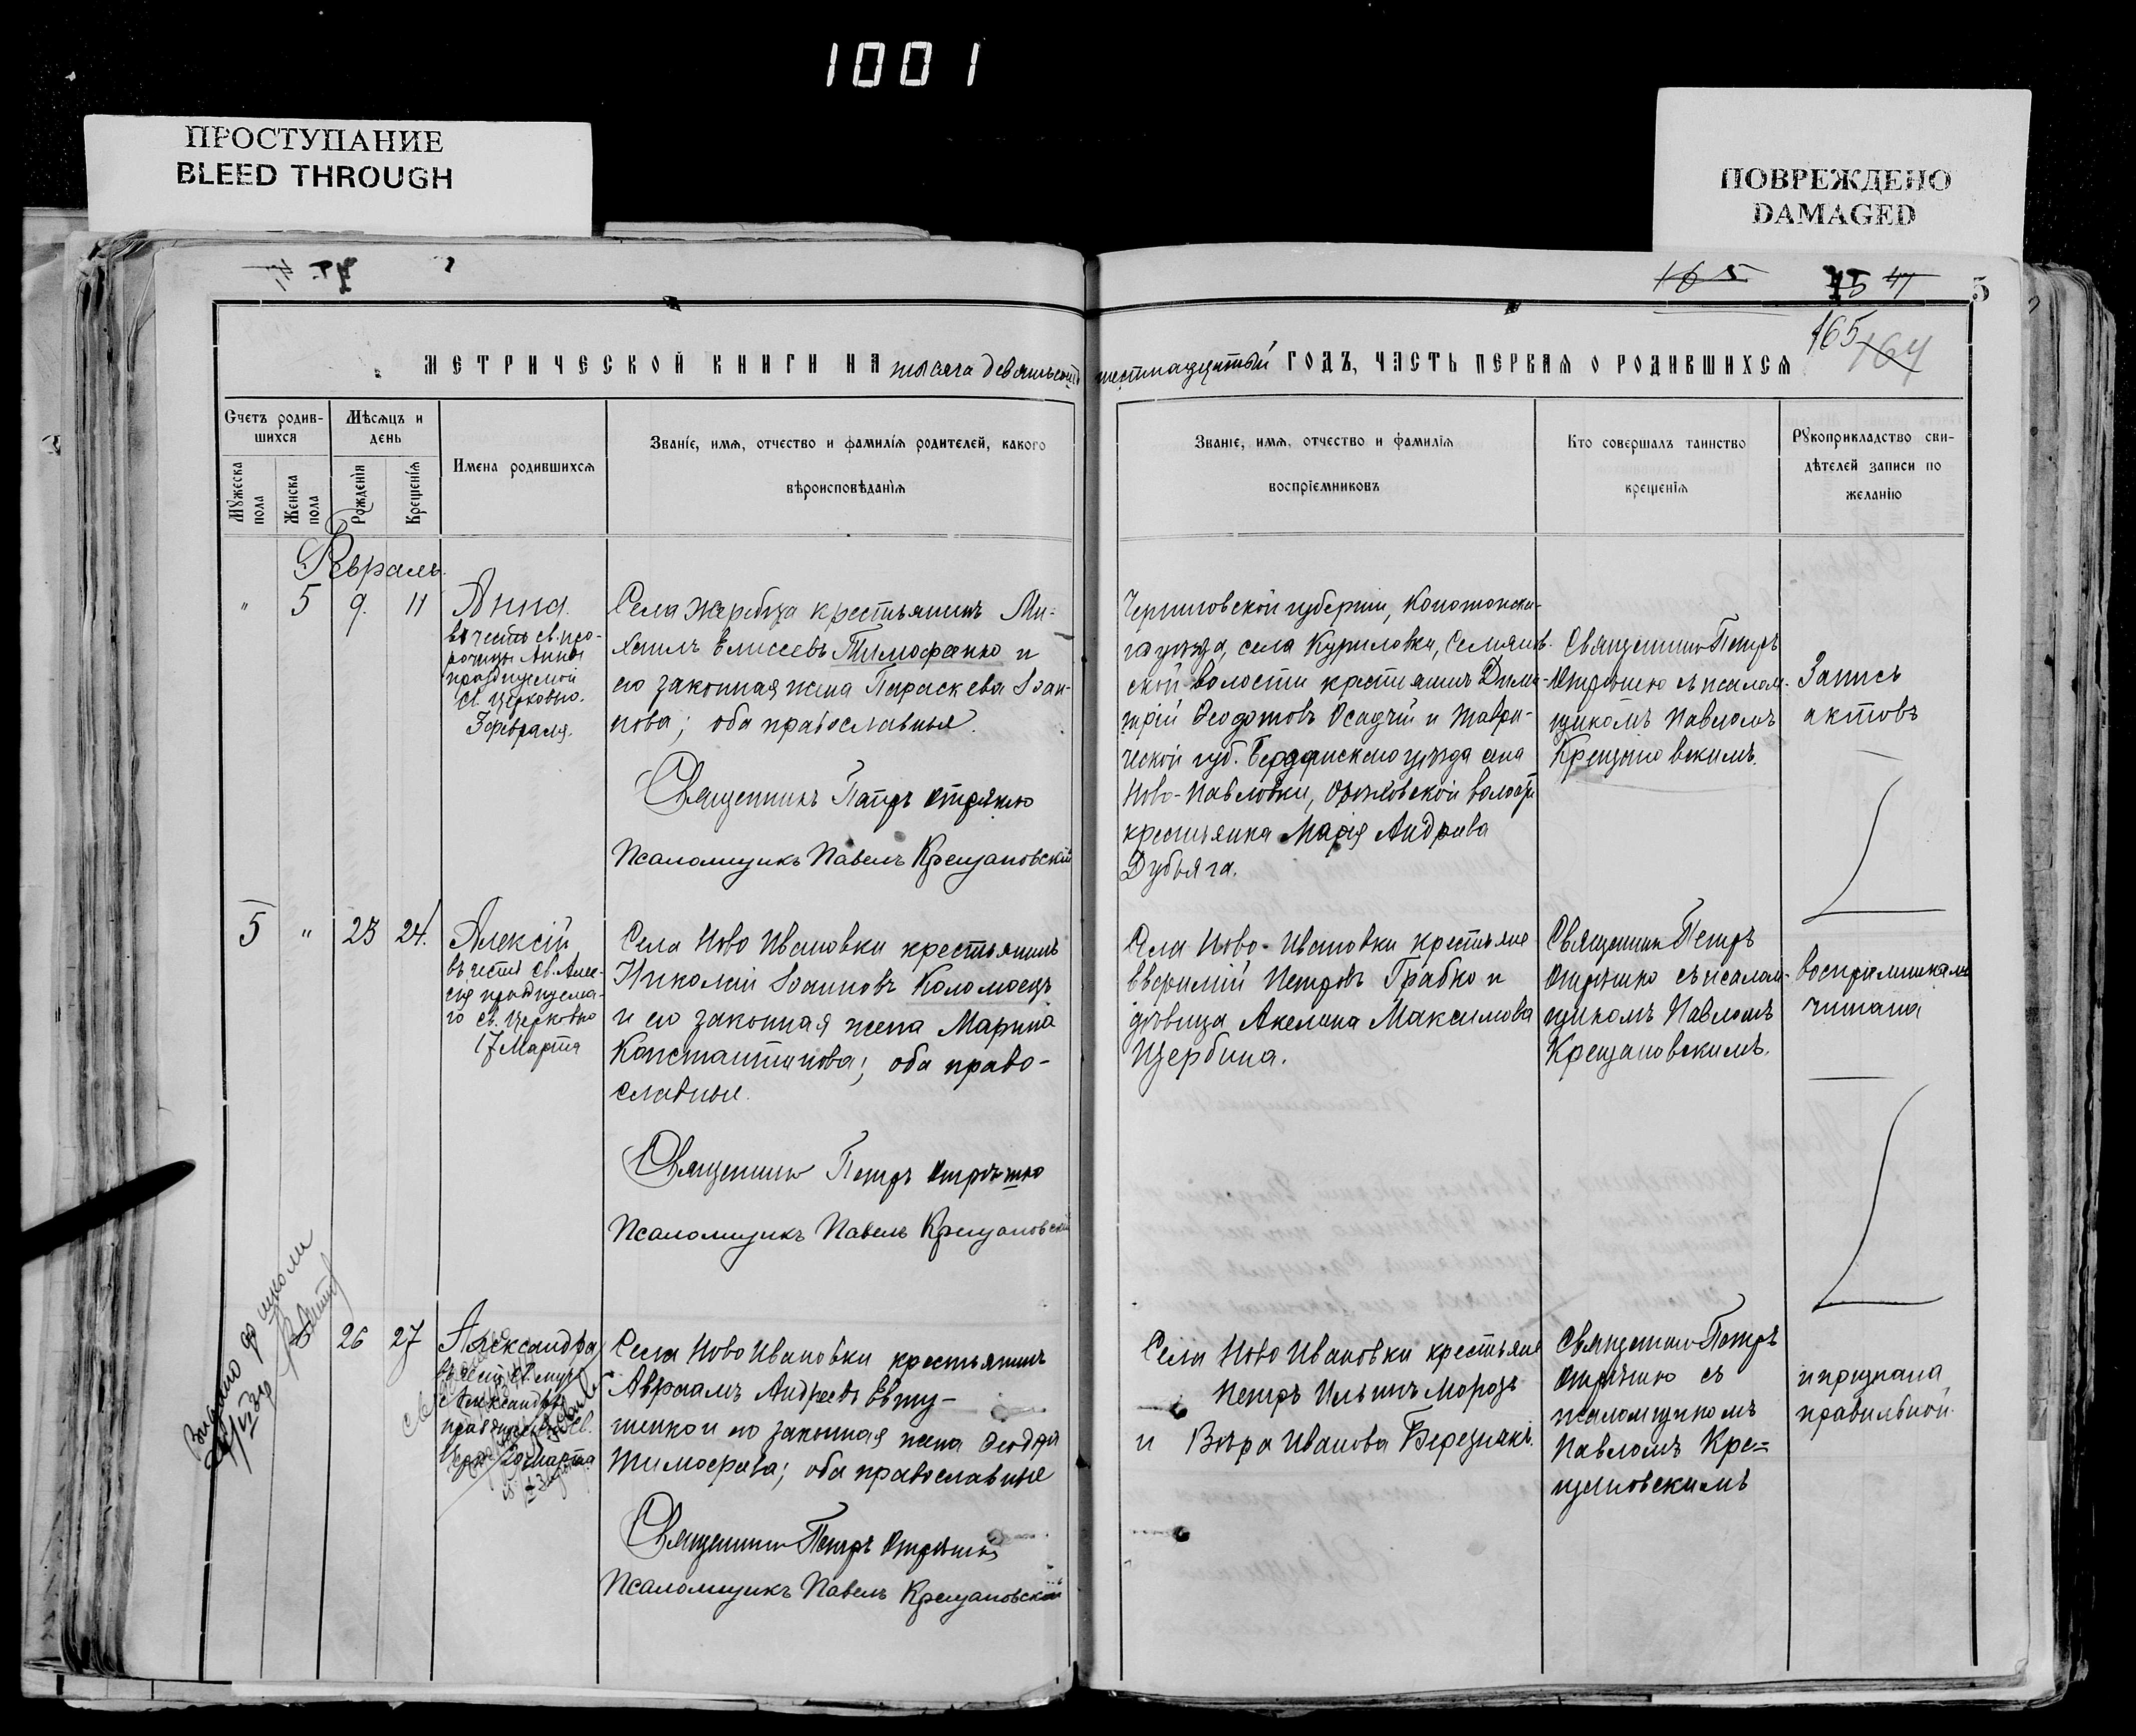 1001
ПРОСТУПАНИЕ
BLEED THROUGH
ПОВРЕЖДЕНО
DAMAGED
165
5
165
164
МЕТРИЧЕСКОЙ КНИГИ НА тысяча девятьсотъ шестнадцатый ГОДЪ, ЧАСТЬ ПЕРВАЯ О РОДИВШИХСЯ
Счетъ родив-
шихся
Мужеска пола
Женска пола
Мѣсяцъ и
день
Рожденія
Крещенія
Имена родившихся
Званіе, имя, отчество и фамилія родителей, какого
вѣроисповѣданія
Званіе, имя, отчество и фамилія
воспріемниковъ
Кто совершалъ таинство
крещенія
Рукоприкладство сви-
дѣтелей записи по
желанію
Февраль.
" 5 9. 11
Анна.
въ честь св. про-
рочицы Анны
празднуемой
св. Церковью.
3 февраля.
Села Жеребца крестьянинъ Ми-
хаилъ Елисеевъ Тимофеенко и
его законная жена Параскева Іоан-
нова; оба православные.
Священникъ Петръ Отрѣшко
Псаломщикъ Павелъ Крещановскій
Черниговской губерніи, Конотопска-
го уѣзда, села Куриловки, Семянов-
ской волости крестьянинъ Дими-
трій Феодотовъ Осадчій и Таври-
ческой губ. Бердянскаго уѣзда села
Ново-Павловки, Орѣховской волости
крестьянка Марія Андреева
Дубьяга.
Священникъ Петръ
Отрѣшко съ псалом-
щикомъ Павломъ
Крещановскимъ.
Запись
актовъ
5 " 23 24.
Алексій
въ честь св. Алек-
сія празднуема-
го св. Церковью
17 Марта
Села Ново Ивановки крестьянинъ
Николай Іоанновъ Коломоецъ
и его законная жена Марина
Константинова; оба право-
славные.
Священникъ Петръ Отрѣшко
Псаломщикъ Павелъ Крещановскій
Села Ново-Ивановки крестьяне
Евфимій Петровъ Грабко и
дѣвица Акелина Максимова
Щербина.
Священникъ Петръ
Отрѣшко съ псалом-
щикомъ Павломъ
Крещановскимъ.
воспріемниками
читана
Видано до школи
26 27
Александра
въ честь св. муч.
Александры
празднуемой св.
Церк. 20 марта
Села Ново Ивановки крестьянинъ
Авраамъ Андреевъ Евту-
шенко и его законная жена Феодора
Тимофеева; оба православные
Священникъ Петръ Отрѣшко
Псаломщикъ Павелъ Крещановскій
Села Ново Ивановки крестьяне
Петръ Ильинъ Морозъ
и Вѣра Иванова Березнякъ.
Священникъ Петръ
Отрѣшко съ
псаломщикомъ
Павломъ Кре=
щановскимъ
и признана
правильной.